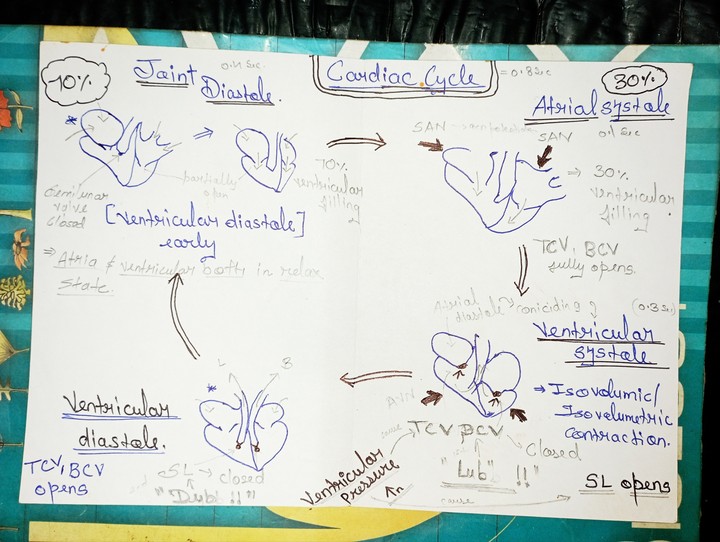 10%
Joint 0.4 sec
Diastole.
Cardiac Cycle = 0.8 sec
30%
Atrial systole
0.1 sec
SAN
SAN
⇒ 30%
ventricular
filling
70%
ventricular
filling
partially
open
Semilunar
valve
closed
[Ventricular diastole]
early
⇒ Atria & ventricular both in relax
state.
TCV, BCV
fully opens
Atrial
diastole coniciding
(0.3 sec)
Ventricular
systole
→ Isovolumic/
Isovolumetric
contraction.
AVN
cause
TCV, BCV
Closed
"Lub" !!
Ventricular
Pressure ↑n
cause
SL opens
B
Ventricular
diastole.
TCV, BCV
opens
SL → closed
"Dub" !!